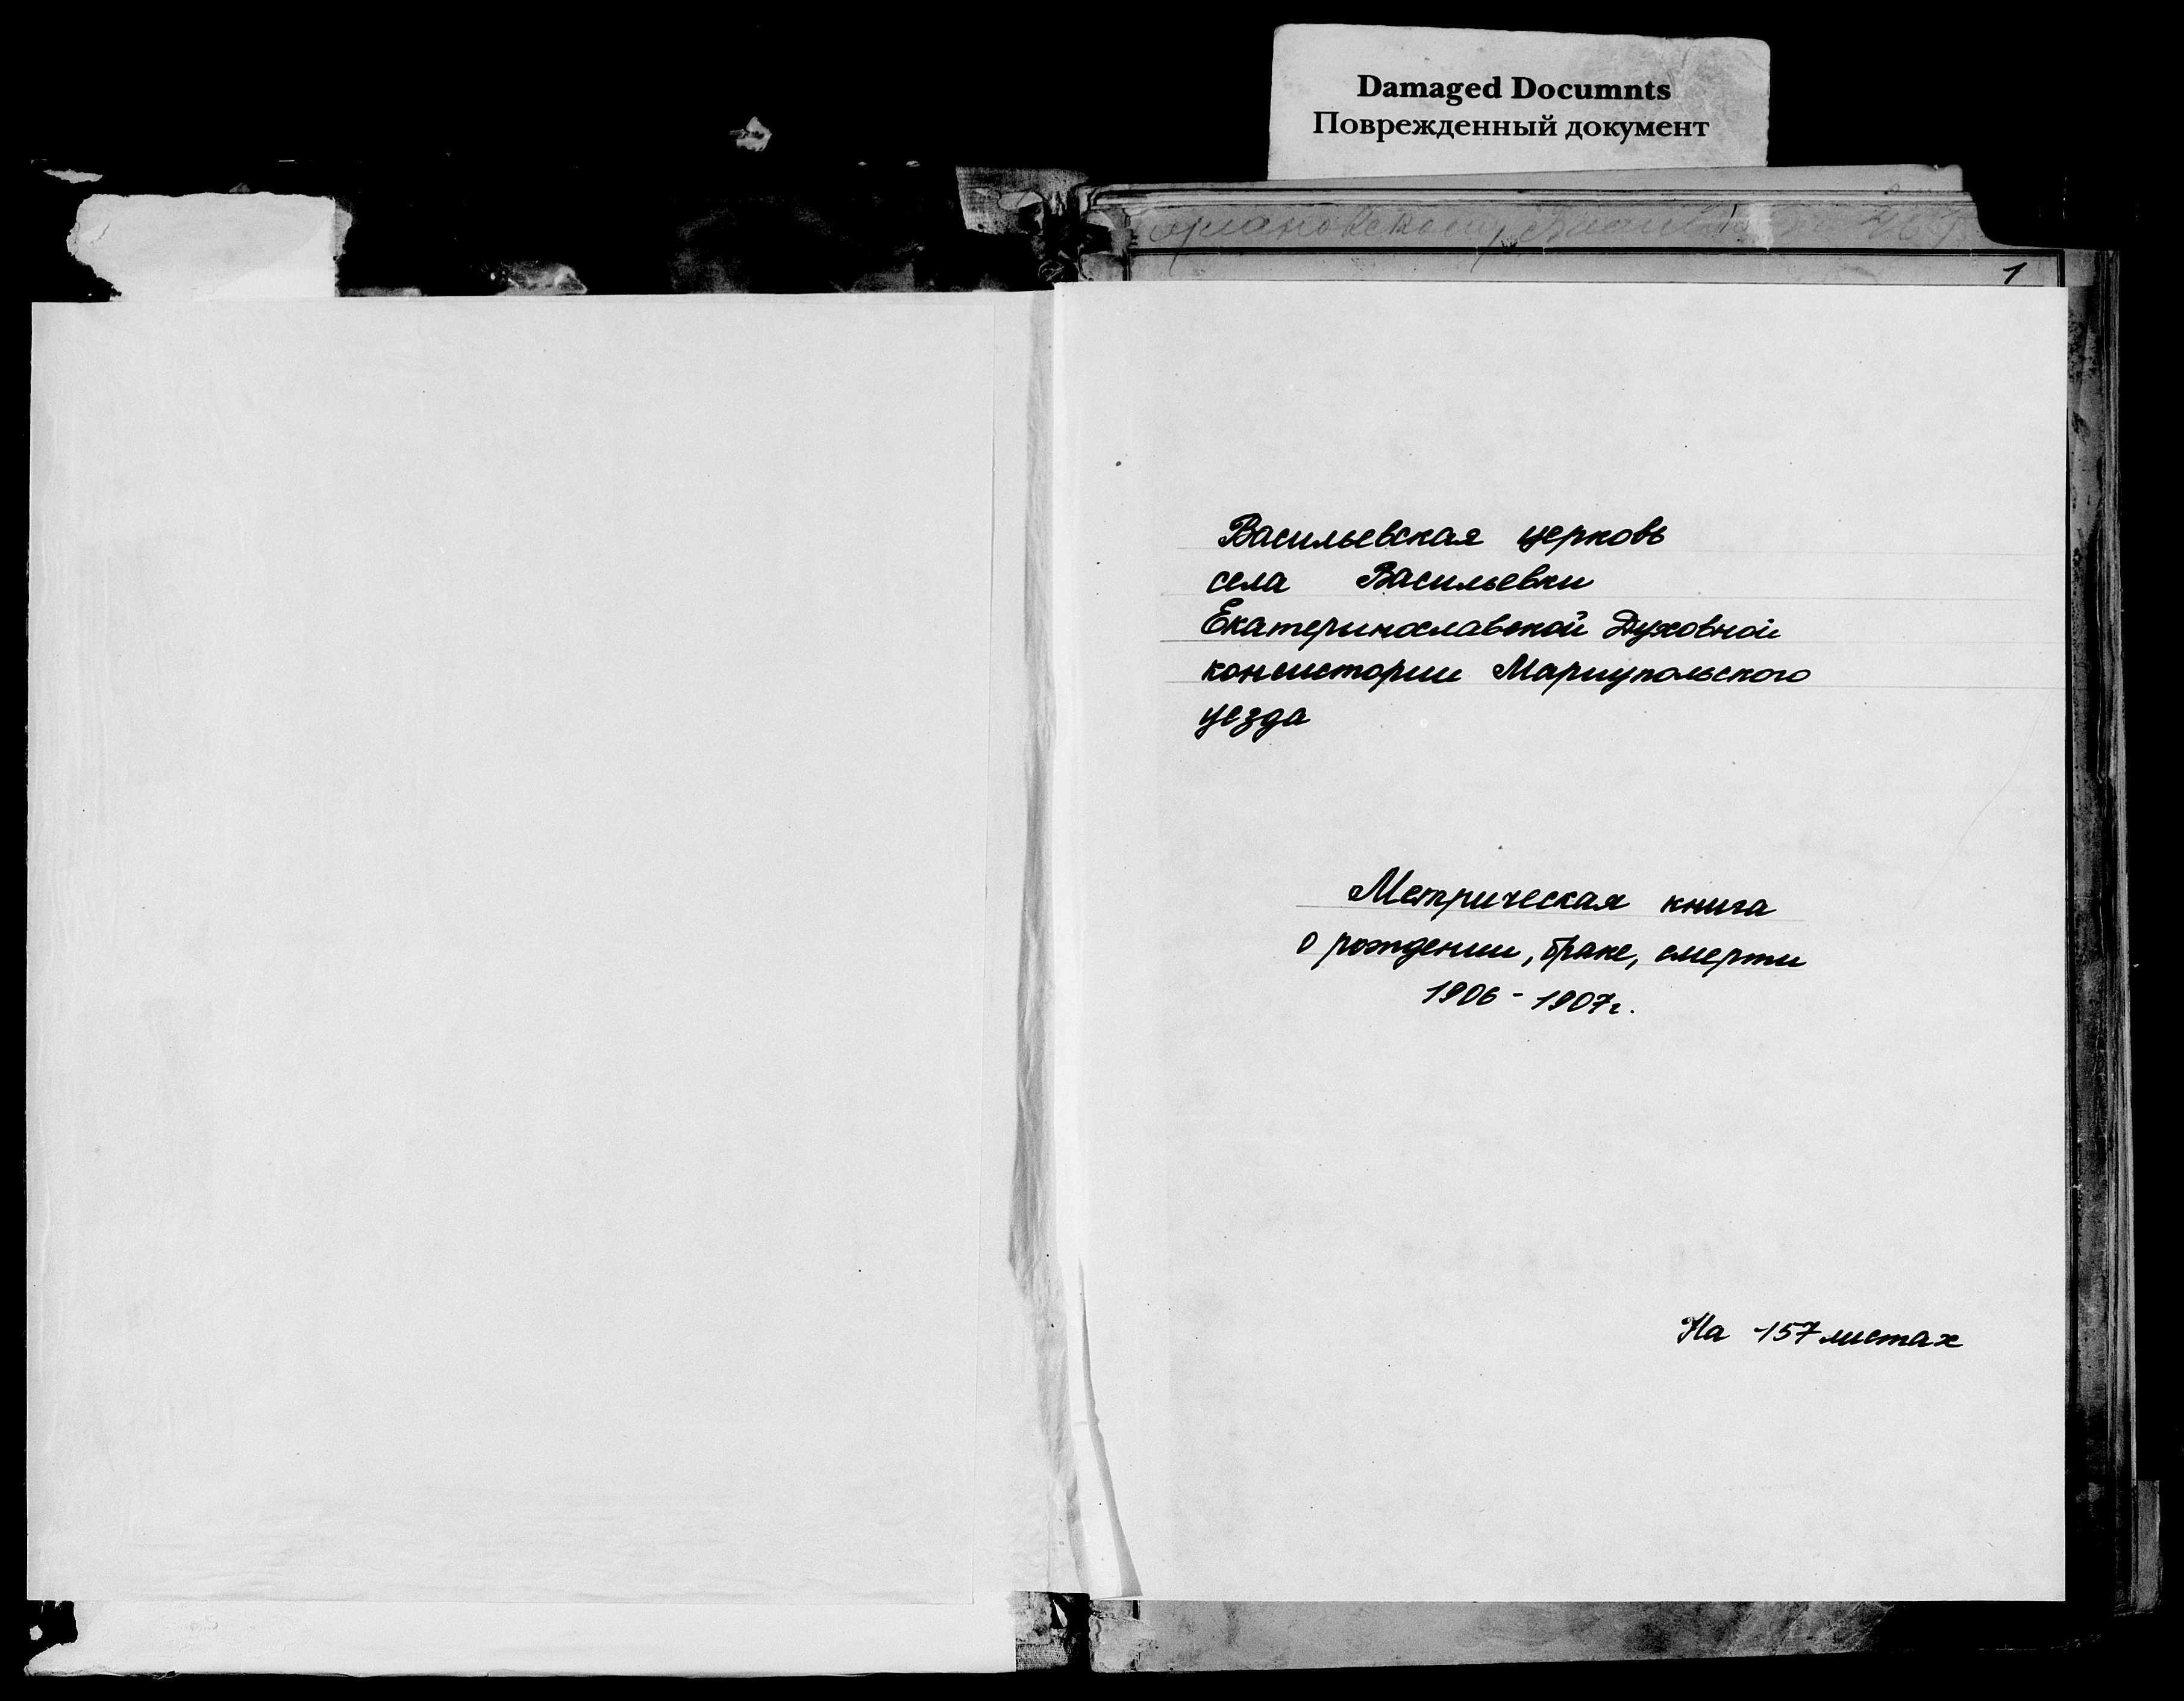 Damaged Documnts
Поврежденный документ
1
Васильевская церковь
села Васильевки
Екатеринославской Духовной
консистории Мариупольского
уезда
Метрическая книга
о рождении, браке, смерти
1906 - 1907г.
На 157 листах